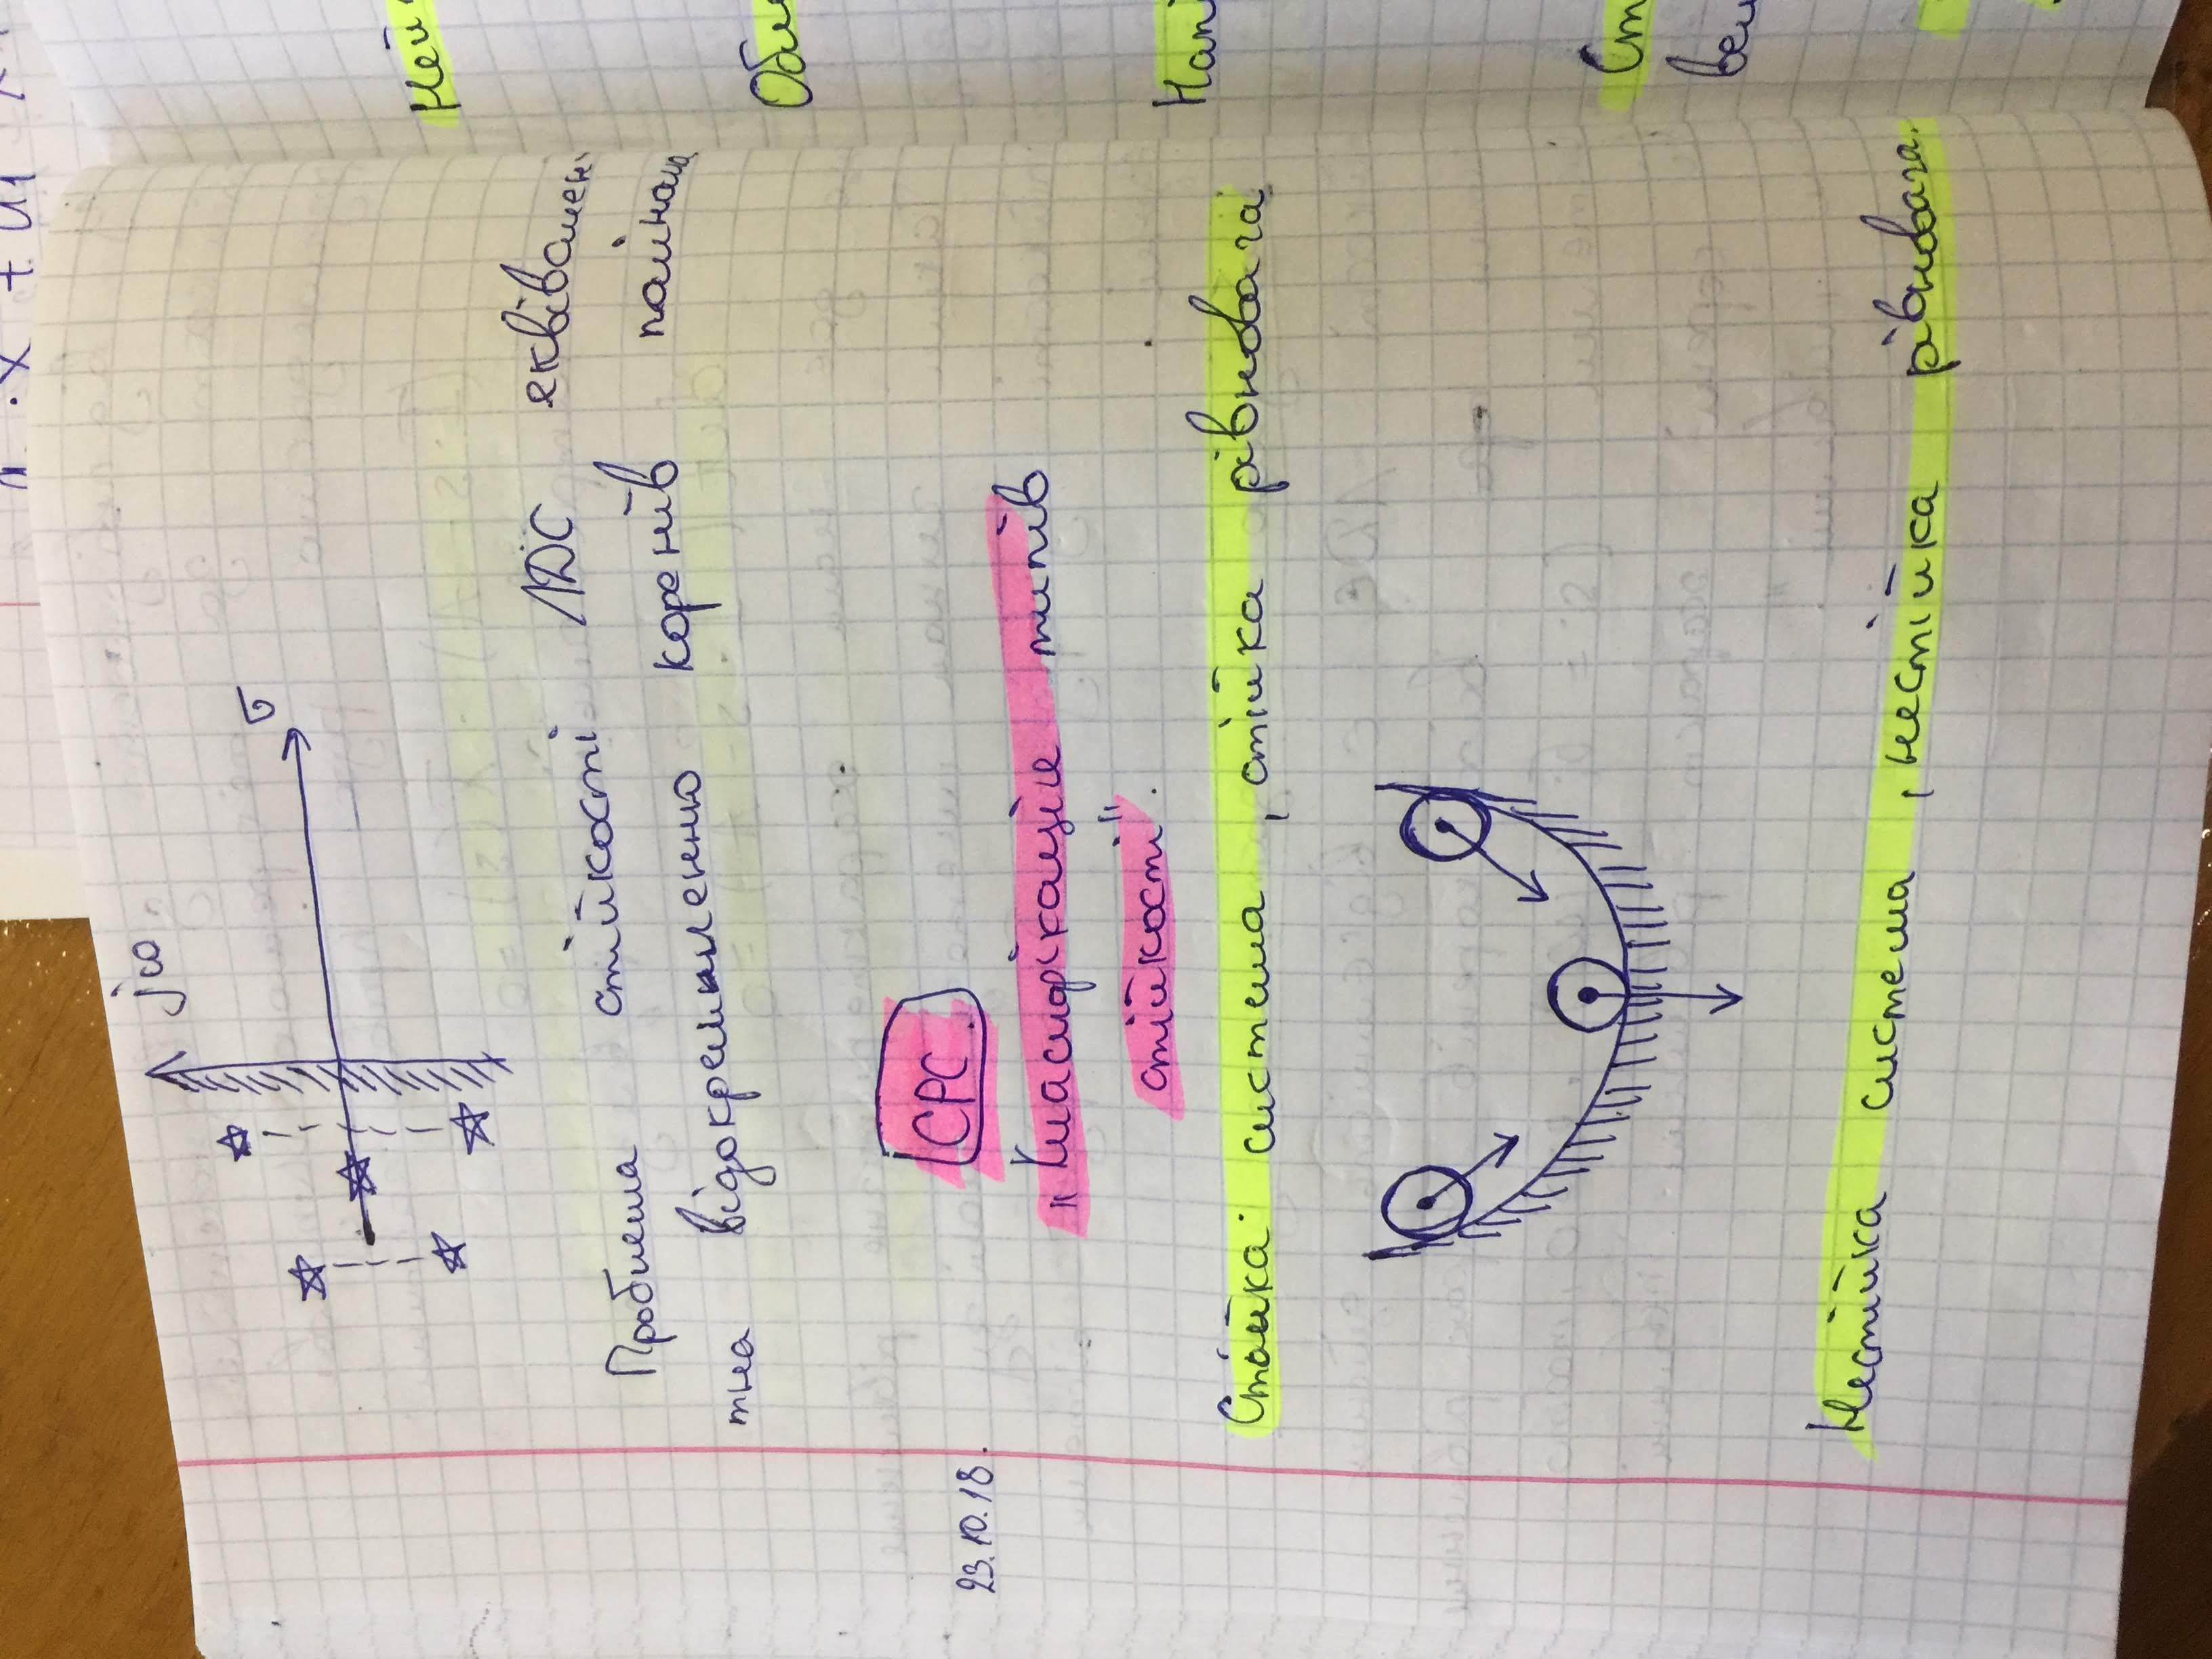 jω
σ
Проблема стійкості ЛДС еквівален-
тна відокремленню коренів полінома
23.10.18.
СРС.
"Класифікація типів
стійкості".
Стійка система, стійка рівновага
Нестійка система, нестійка рівновага.
Ней
Обл
Напі
Ст
вел